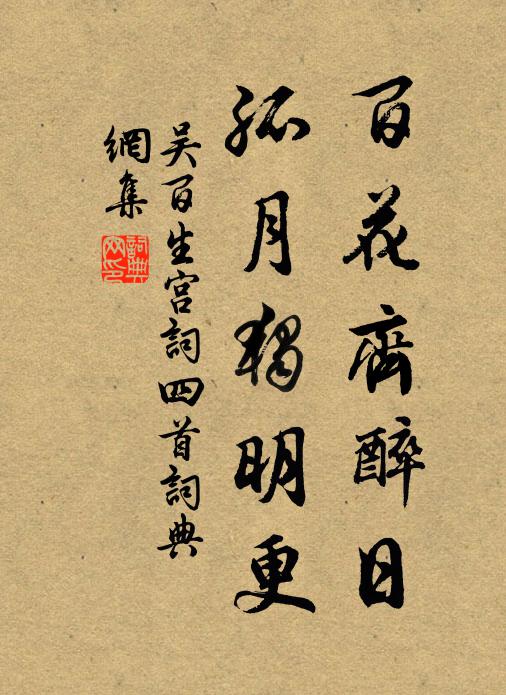 百花齊醉日
孤月獨明更
吴百生宫詞四首詞典
網集
詞典網印